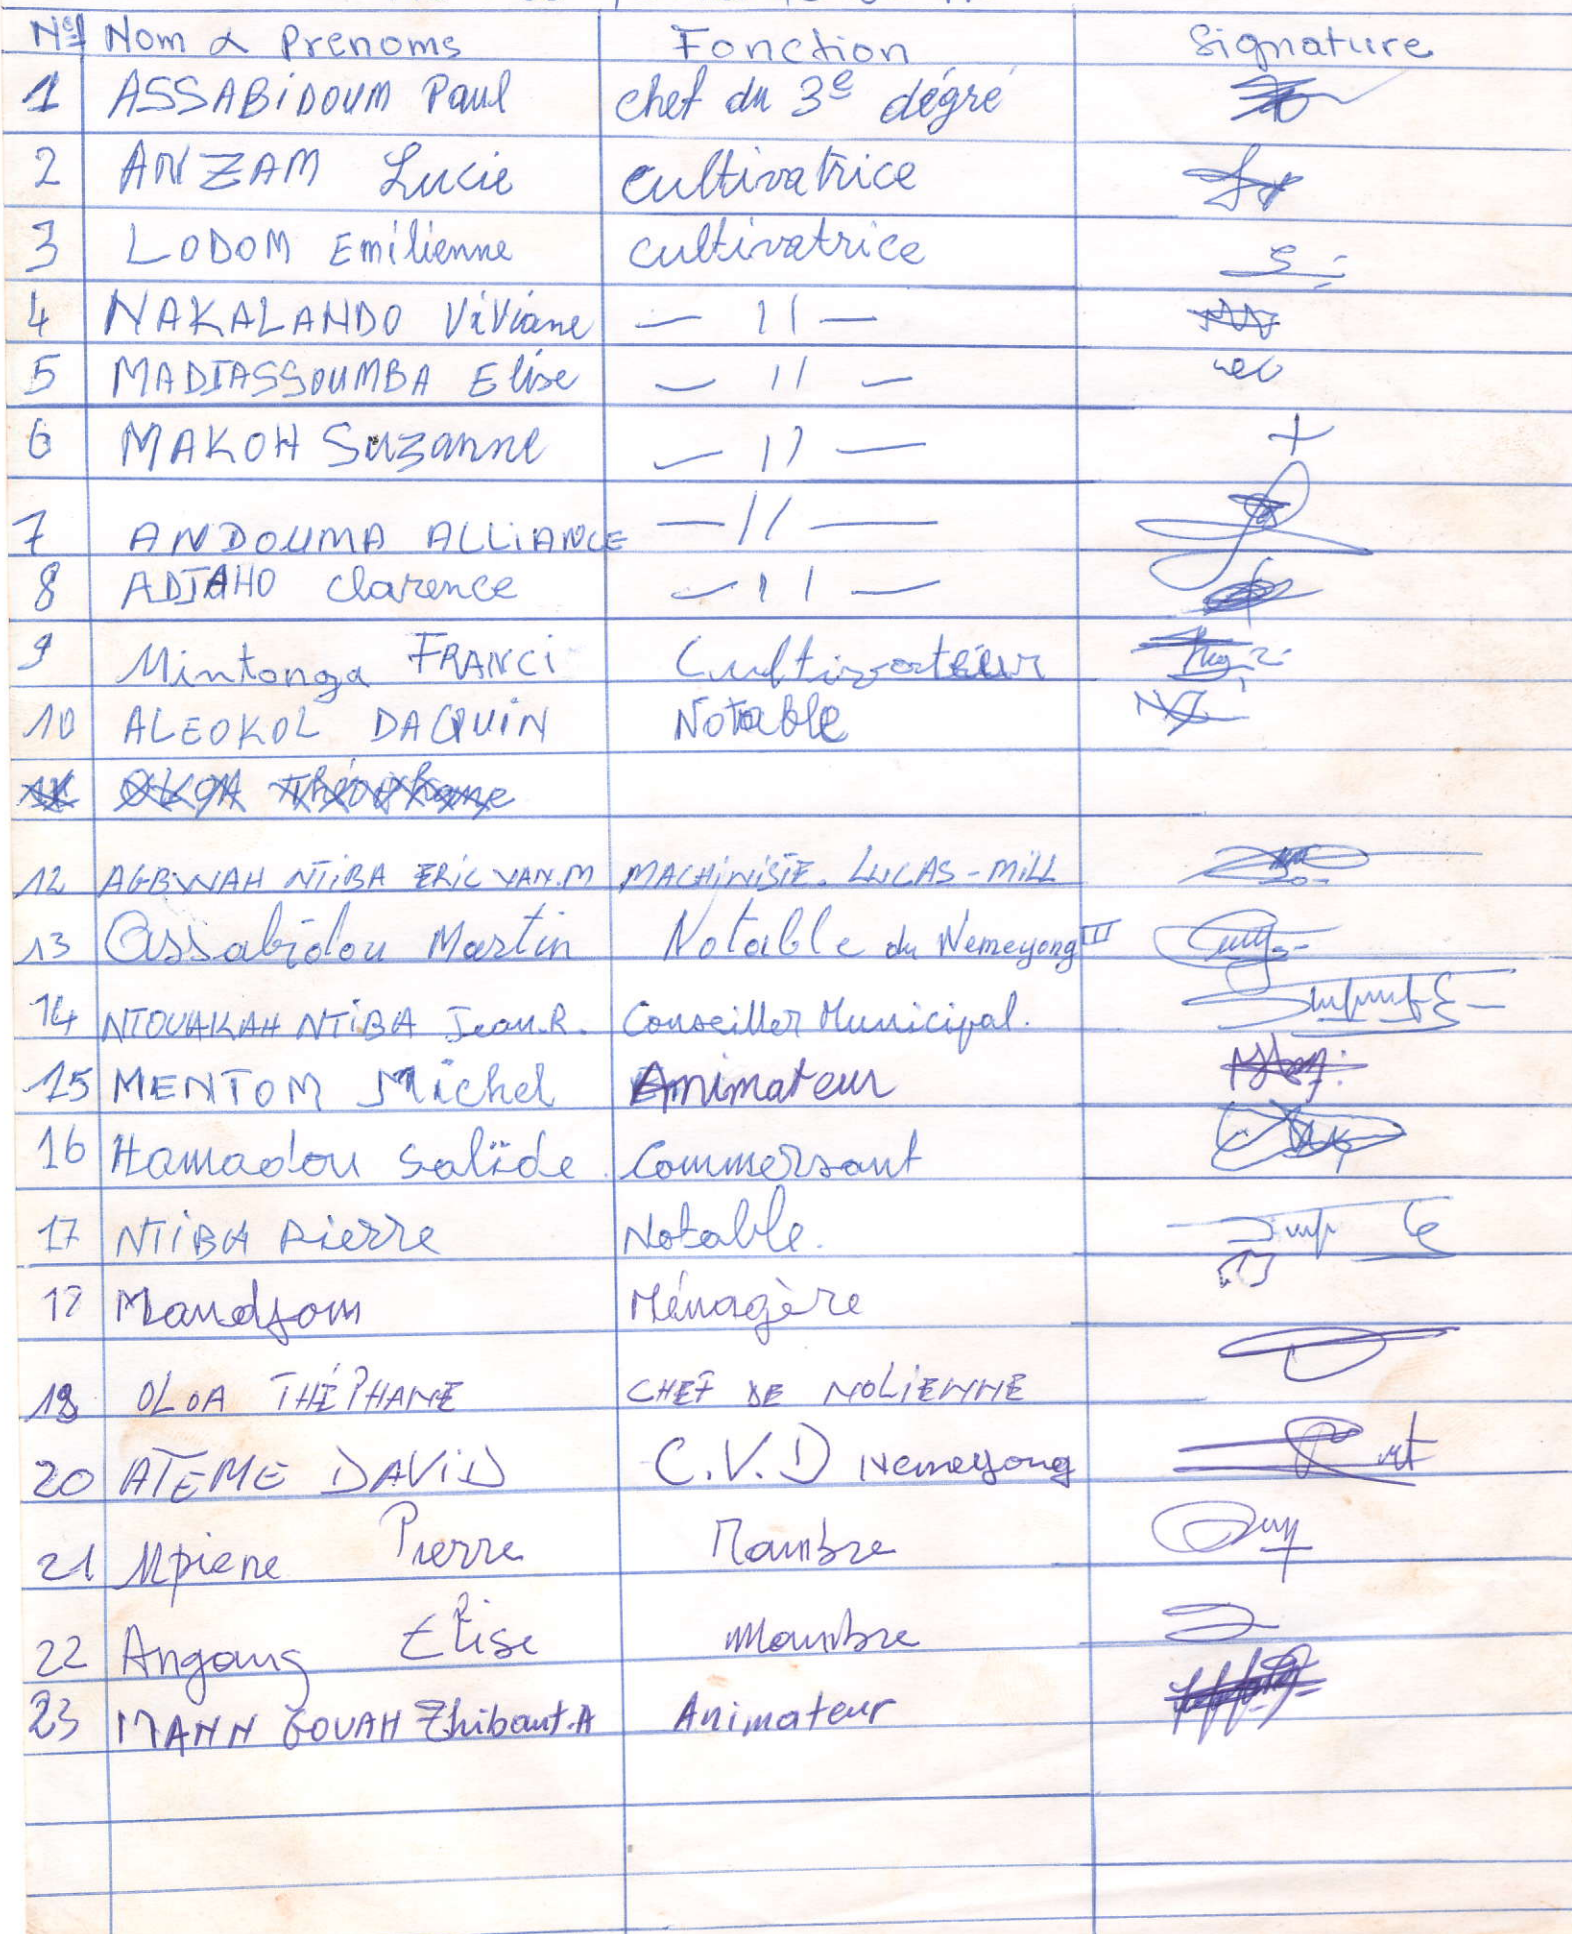 N° Nom & Prenoms Fonction Signature
1 ASSABiDOUM Paul chef du 3e dégré
2 ANZAM Lucie cultivatrice
3 LODOM Emilienne cultivatrice
4 NAKALANDO ViViane — 11 —
5 MADJASSOUMBA Elise — 11 —
6 MAKOH Suzanne — 11 —
7 ANDOUMA ALLiANCE — 11 —
8 ADJAHO Clarence — 11 —
9 Mintonga FRANCi Cultivateur
10 ALEOKOL DAQUiN Notable
12 AGBWAH NTiBA ERiC VAN.M MACHiNiSTE. LUCAS-MiLL
13 Assabidou Martin Notable du Nemeyong III
14 NTOUAKAH NTiBA Jean.R. Conseiller Municipal.
15 MENTOM Michel Animateur
16 Hamadou Salïde Commersant
17 NTiBA Pierre Notable.
Mandjom Ménagère
19 OLOA THÉPHANE CHEF DE MOLIENNE
20 ATEME DAViD C.V.D Nemeyong
21 Mpiene Pierre Mambre
22 Angang Elise Mambre
23 MANN GOUAH Thibaut.A Animateur